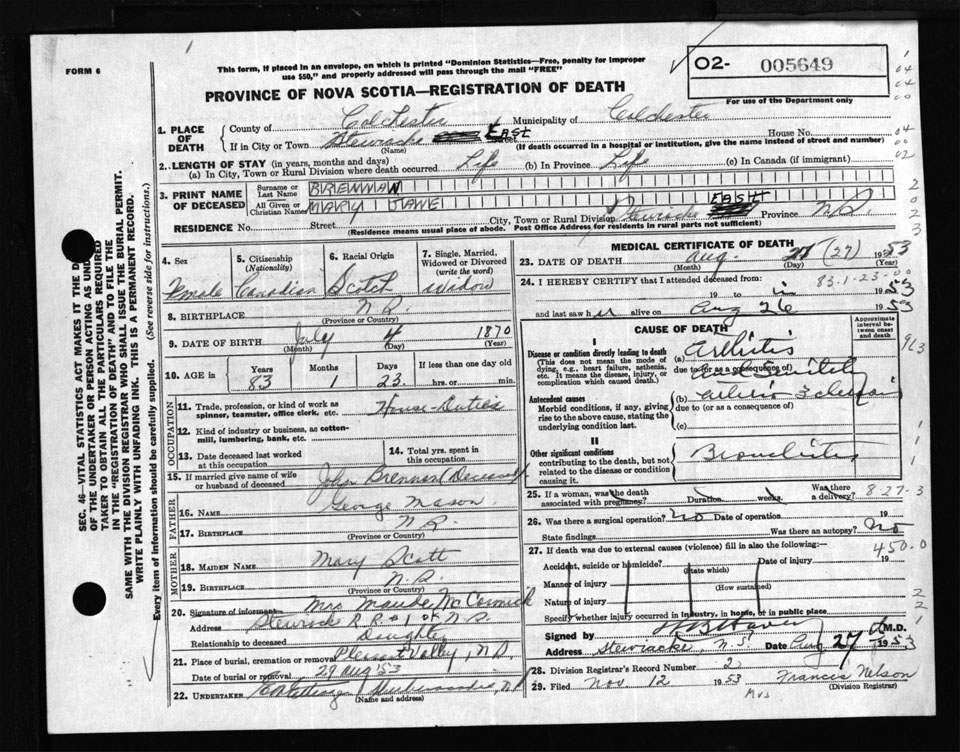 FORM 6
This form, if placed in an envelope, on which is printed "Dominion Statistics—Free, penalty for improper
use $50," and properly addressed will pass through the mail "FREE"
02- 005649
For use of the Department only
PROVINCE OF NOVA SCOTIA—REGISTRATION OF DEATH
1. PLACE OF DEATH
County of Colchester Municipality of Colchester
If in City or Town Stewiacke East Street House No.
(Name) (If death occurred in a hospital or institution, give the name instead of street and number)
2. LENGTH OF STAY (in years, months and days)
(a) In City, Town or Rural Division where death occurred Life (b) In Province Life (c) In Canada (if immigrant)
3. PRINT NAME OF DECEASED
Surname or Last Name BRENNAN
All Given or Christian Names MARY JANE
RESIDENCE No. Street City, Town or Rural Division Stewiacke EAST Province N.S.
(Residence means usual place of abode. Post Office Address for residents in rural parts not sufficient)
4. Sex Female
5. Citizenship (Nationality) Canadian
6. Racial Origin Scotch
7. Single, Married, Widowed or Divorced (write the word) Widow
8. BIRTHPLACE N.S.
(Province or Country)
9. DATE OF BIRTH July 4 1870
(Month) (Day) (Year)
10. AGE in Years 83 Months 1 Days 23 If less than one day hrs. or min.
OCCUPATION
11. Trade, profession, or kind of work as spinner, teamster, office clerk, etc. House-Duties
12. Kind of industry or business, as cotton-mill, lumbering, bank, etc.
13. Date deceased last worked at this occupation
14. Total yrs. spent in this occupation
15. If married give name of wife or husband of deceased John Brennan (Deceased)
FATHER
16. NAME George Mason
17. BIRTHPLACE N.S.
(Province or Country)
MOTHER
18. MAIDEN NAME Mary Scott
19. BIRTHPLACE N.S.
(Province or Country)
20. Signature of informant Mrs Maude McCormick
Address Stewiacke R R #1 N.S.
Relationship to deceased Daughter
21. Place of burial, cremation or removal Pleasant Valley, N.S.
Date of burial or removal 29 Aug '53
22. UNDERTAKER
(Name and address)
MEDICAL CERTIFICATE OF DEATH
23. DATE OF DEATH Aug. (27) 1953
(Month) (Day) (Year)
83-1-23-00
24. I HEREBY CERTIFY that I attended deceased from:
19 to 1953
and last saw her alive on Aug 26 1953
CAUSE OF DEATH
Approximate interval between onset and death
I
Disease or condition directly leading to death
(This does not mean the mode of dying, e.g., heart failure, asthenia, etc. It means the disease, injury, or complication which caused death.)
(a) Arthritis
due to (or as a consequence of)
and Senility
Antecedent causes
Morbid conditions, if any, giving rise to the above cause, stating the underlying condition last.
(b)
due to (or as a consequence of)
(c)
II
Other significant conditions
contributing to the death, but not related to the disease or condition causing it.
Bronchitis
25. If a woman, was the death associated with pregnancy? Duration weeks. Was there a delivery?
8-27-3
26. Was there a surgical operation? No Date of operation 19
State findings Was there an autopsy? No
27. If death was due to external causes (violence) fill in also the following:—
450.0
Accident, suicide or homicide? Date of injury 19
(State which)
Manner of injury
(How sustained)
Nature of injury
Specify whether injury occurred in industry, in home, or in public place
Signed by M.D.
Address Stewiacke, N.S. Date Aug 27 1953
28. Division Registrar's Record Number 2
29. Filed Nov 12 1953 Mrs Francis Nelson
(Division Registrar)
SEC. 46—VITAL STATISTICS ACT MAKES IT THE
OF THE UNDERTAKER OR PERSON ACTING AS
TAKER TO OBTAIN ALL THE PARTICULARS REQUIRED
IN THE "REGISTRATION OF DEATH" AND TO FILE THE
SAME WITH THE DIVISION REGISTRAR WHO SHALL ISSUE THE BURIAL PERMIT.
WRITE PLAINLY WITH UNFADING INK. THIS IS A PERMANENT RECORD.
Every item of information should be carefully supplied. (See reverse side for instructions.)